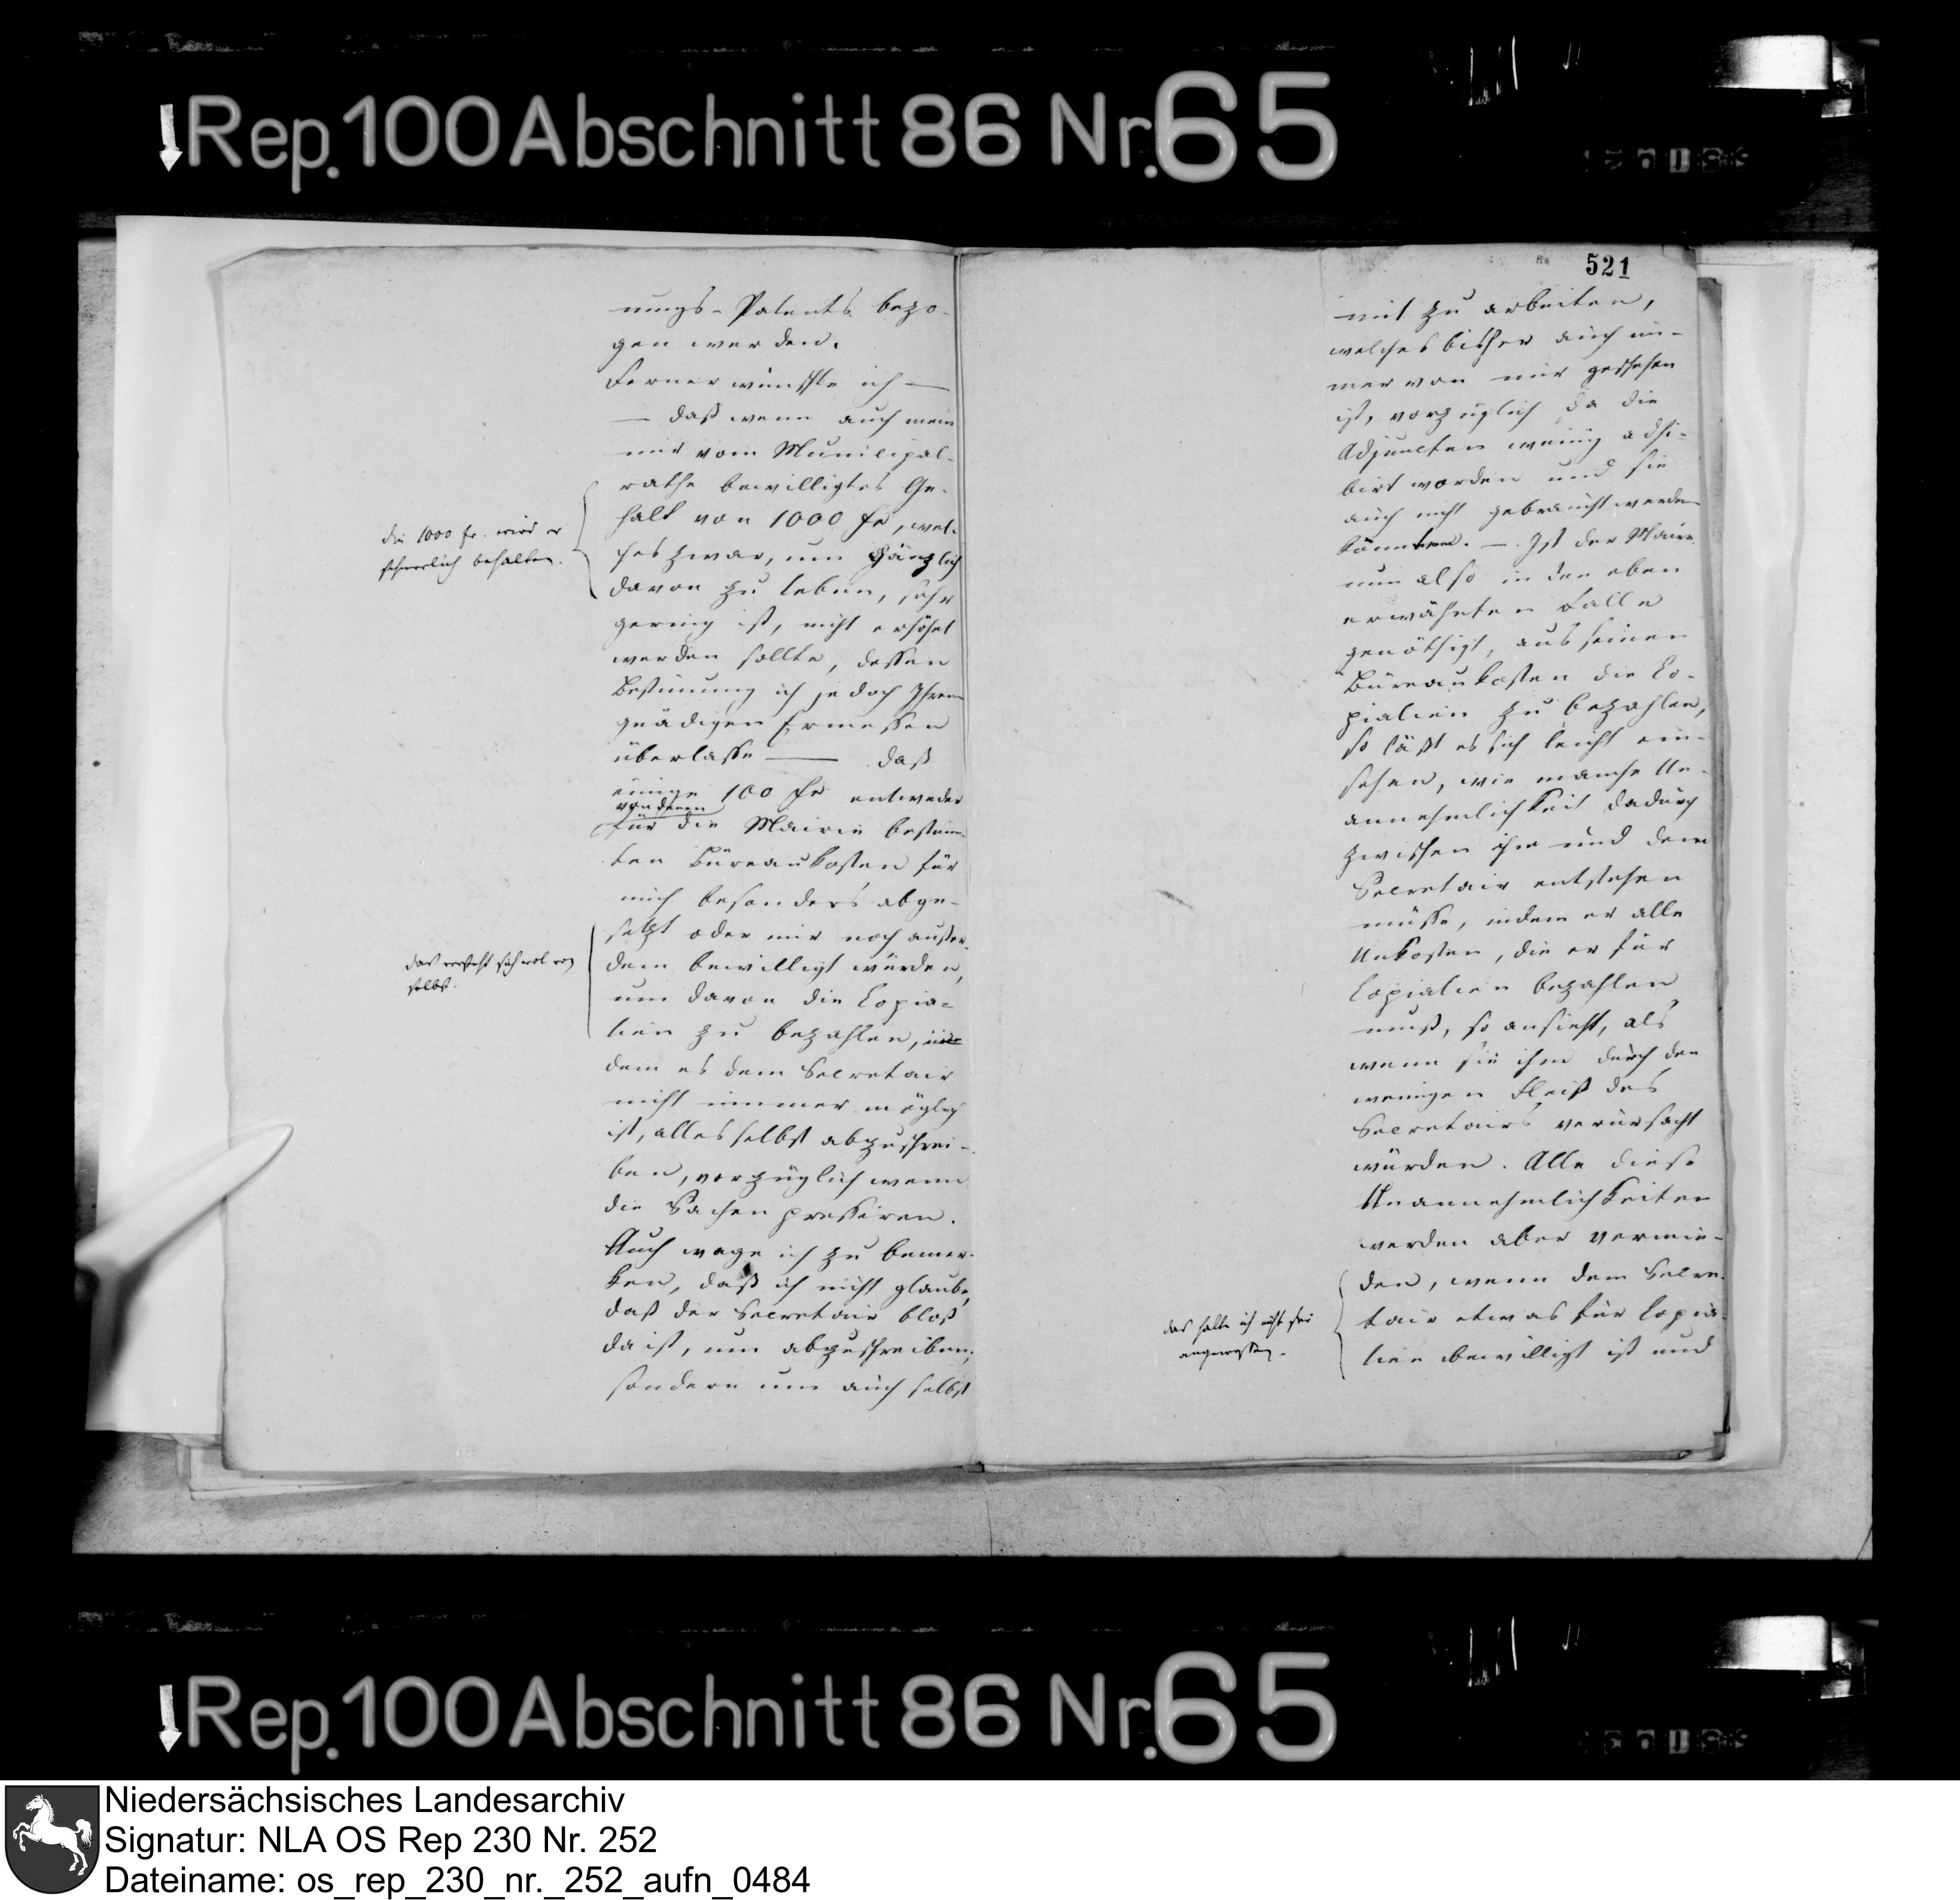 Rep. 100 Abschnitt 86 Nr. 65
nungs-Patents bezo-
gen werden.
Ferner wünschte ich —
— daß wenn auch mein
mir vom Municipal-
rathe bewilligtes Ge-
halt von 1000 fr, wel-
ches zwar, um gänzlich
davon zu leben, sehr
gering ist, nicht erhöhet
werden sollte, dessen
Bestimung ich jedoch Ihrem
gnädigen Ermessen
überlasse — daß
einige 100 fr entweder
von denen
für die Mairie bestim-
ten Büreaukosten für
mich besonders abge-
setzt oder mir noch außer-
dem bewilligt würden,
um davon die Copia-
lien zu bezahlen, in-
dem es dem Secretair
nicht immer möglich
ist, alles selbst abzuschrei-
ben, vorzüglich wenn
die Sachen pressiren.
Auch wage ich zu bemer-
ken, daß ich nicht glaube,
daß der Secretair bloß
da ist, um abzuschreiben,
sondern um auch selbst
die 1000 fr. wird er
schwerlich behalten.
das versteht sich wol von
selbst.
521
mit zu arbeiten,
welches bisher auch im-
mer von mir geschehen
ist, vorzüglich da die
Adjuncten wenig adhi-
birt worden und sie
auch nicht gebraucht werden
könnten. — Ist der Maire
nun also in den eben
erwähnten Falle
genöthigt, aus seinen
Büreaukosten die Co-
pialien zu bezahlen,
so läßt es sich leicht ein-
sehen, wie manche Un-
annehmlichkeit dadurch
zwischen ihm und dem
Secretair entstehen
müsse, indem er alle
Unkosten, die er für
Copialien bezahlen
muß, so ansieht, als
wenn sie ihm durch den
wenigen Fleiß des
Secretairs verursacht
würden. Alle diese
Unannehmlichkeiten
werden aber vermie-
den, wenn dem Secre-
tair etwas für Copia-
lien bewilligt ist und
das halte ich nicht für
angemessen.
Rep. 100 Abschnitt 86 Nr. 65
Niedersächsisches Landesarchiv
Signatur: NLA OS Rep 230 Nr. 252
Dateiname: os_rep_230_nr._252_aufn_0484